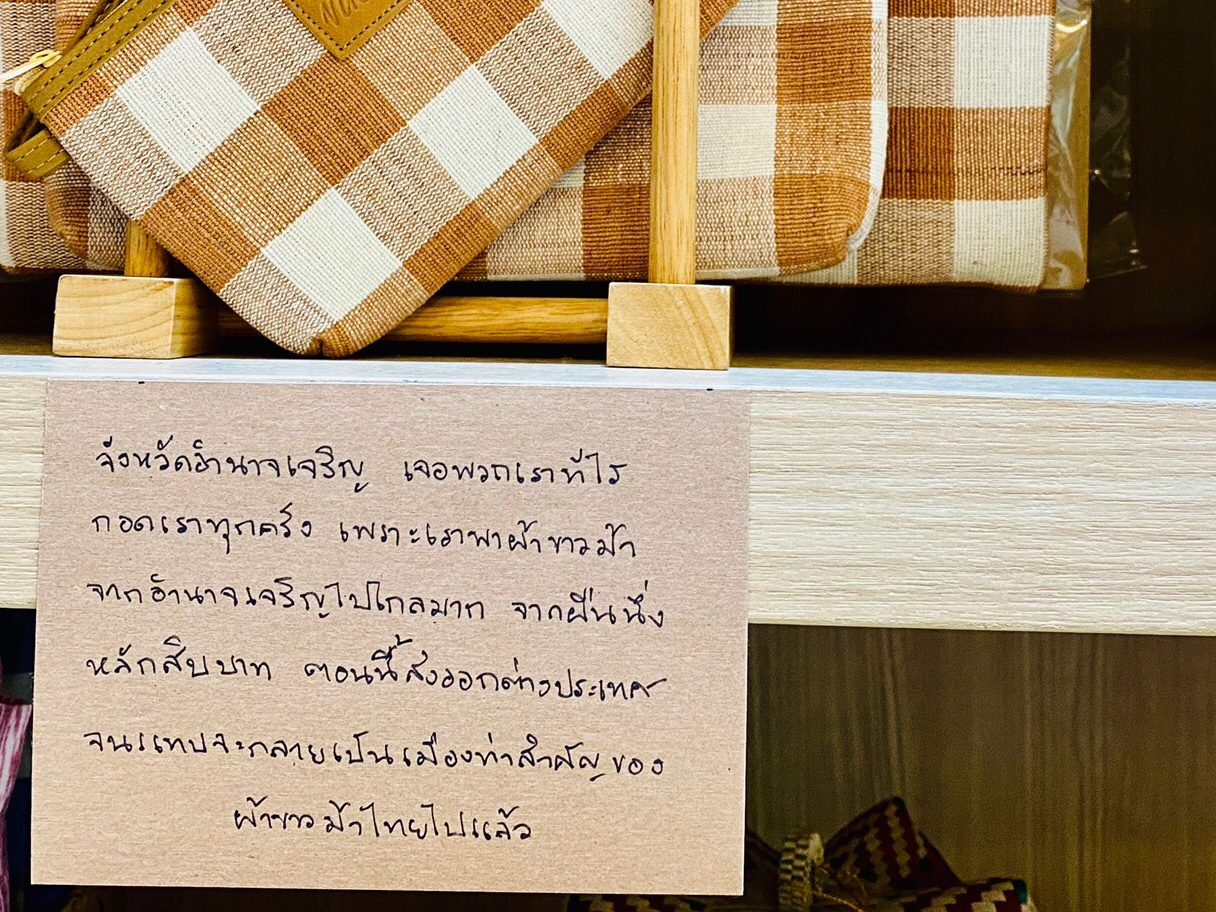 จังหวัดอำนาจเจริญ เจอพวกเราทีไร
กอดเราทุกครั้ง เพราะเราพาผ้าขาวม้า
จากอำนาจเจริญไปไกลมาก จากผืนนึ่ง
หลักสิบบาท ตอนนี้ส่งออกต่างประเทศ
จนแทบจะกลายเป็นเมืองท่าสำคัญของ
ผ้าขาวม้าไทยไปแล้ว